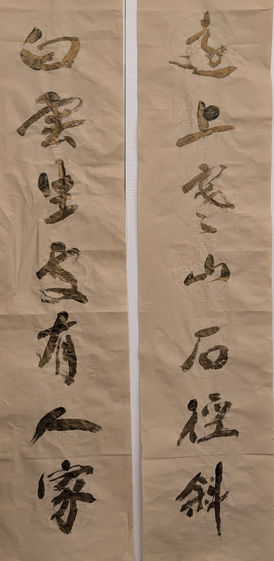 遠上寒山石徑斜
白雲生處有人家